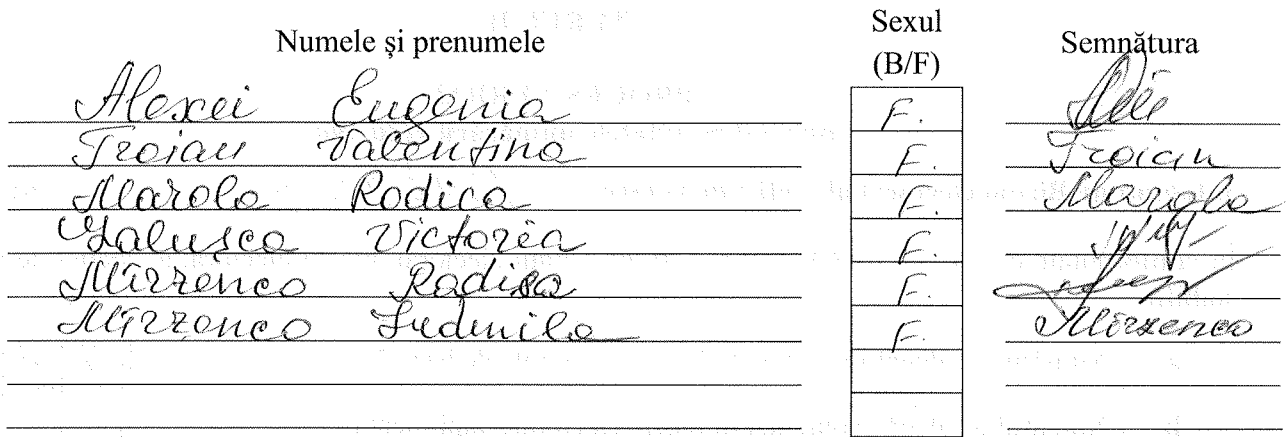 Numele și prenumele Sexul (B/F) Semnătura
Alexei Eugenia F.
Troian Valentina F. Troian
Marola Rodica F. Marola
Galușca Victoria F.
Mîrzenco Radisa F.
Mîrzenco Ludmila F. Mîrzenco